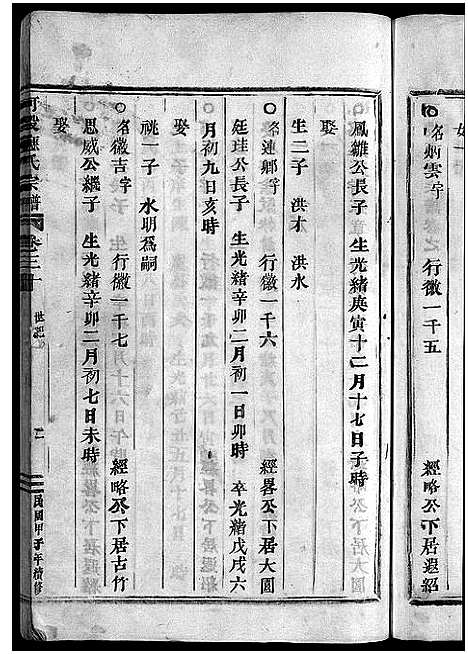 名炳雲字 行徽一千五 經略公下居遐紹
鳳雛公長子 生光緒庚寅十二月十七日子時
娶
生二子 洪才 洪水
○名連鄉字 行徽一千六 經畧公下居大園
廷珪公長子 生光緒辛卯二月初一日卯時 卒光緒戊戌六
月初九日亥時
娶
祧一子 水明為嗣
○名徽吉字 行徽一千七 經略公下居古竹
思威公繼子 生光緒辛卯二月初七日未時
娶
氏宗譜 卷三十 世 民國甲子年續修